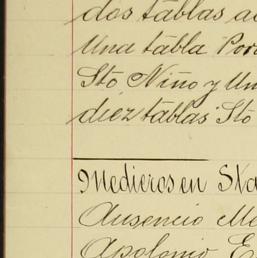 dos tablas
Una tabla Por
Sto Niño y Un
diez tablas Sto
Medieros en Sta
Ausencio Me
Apolonio E